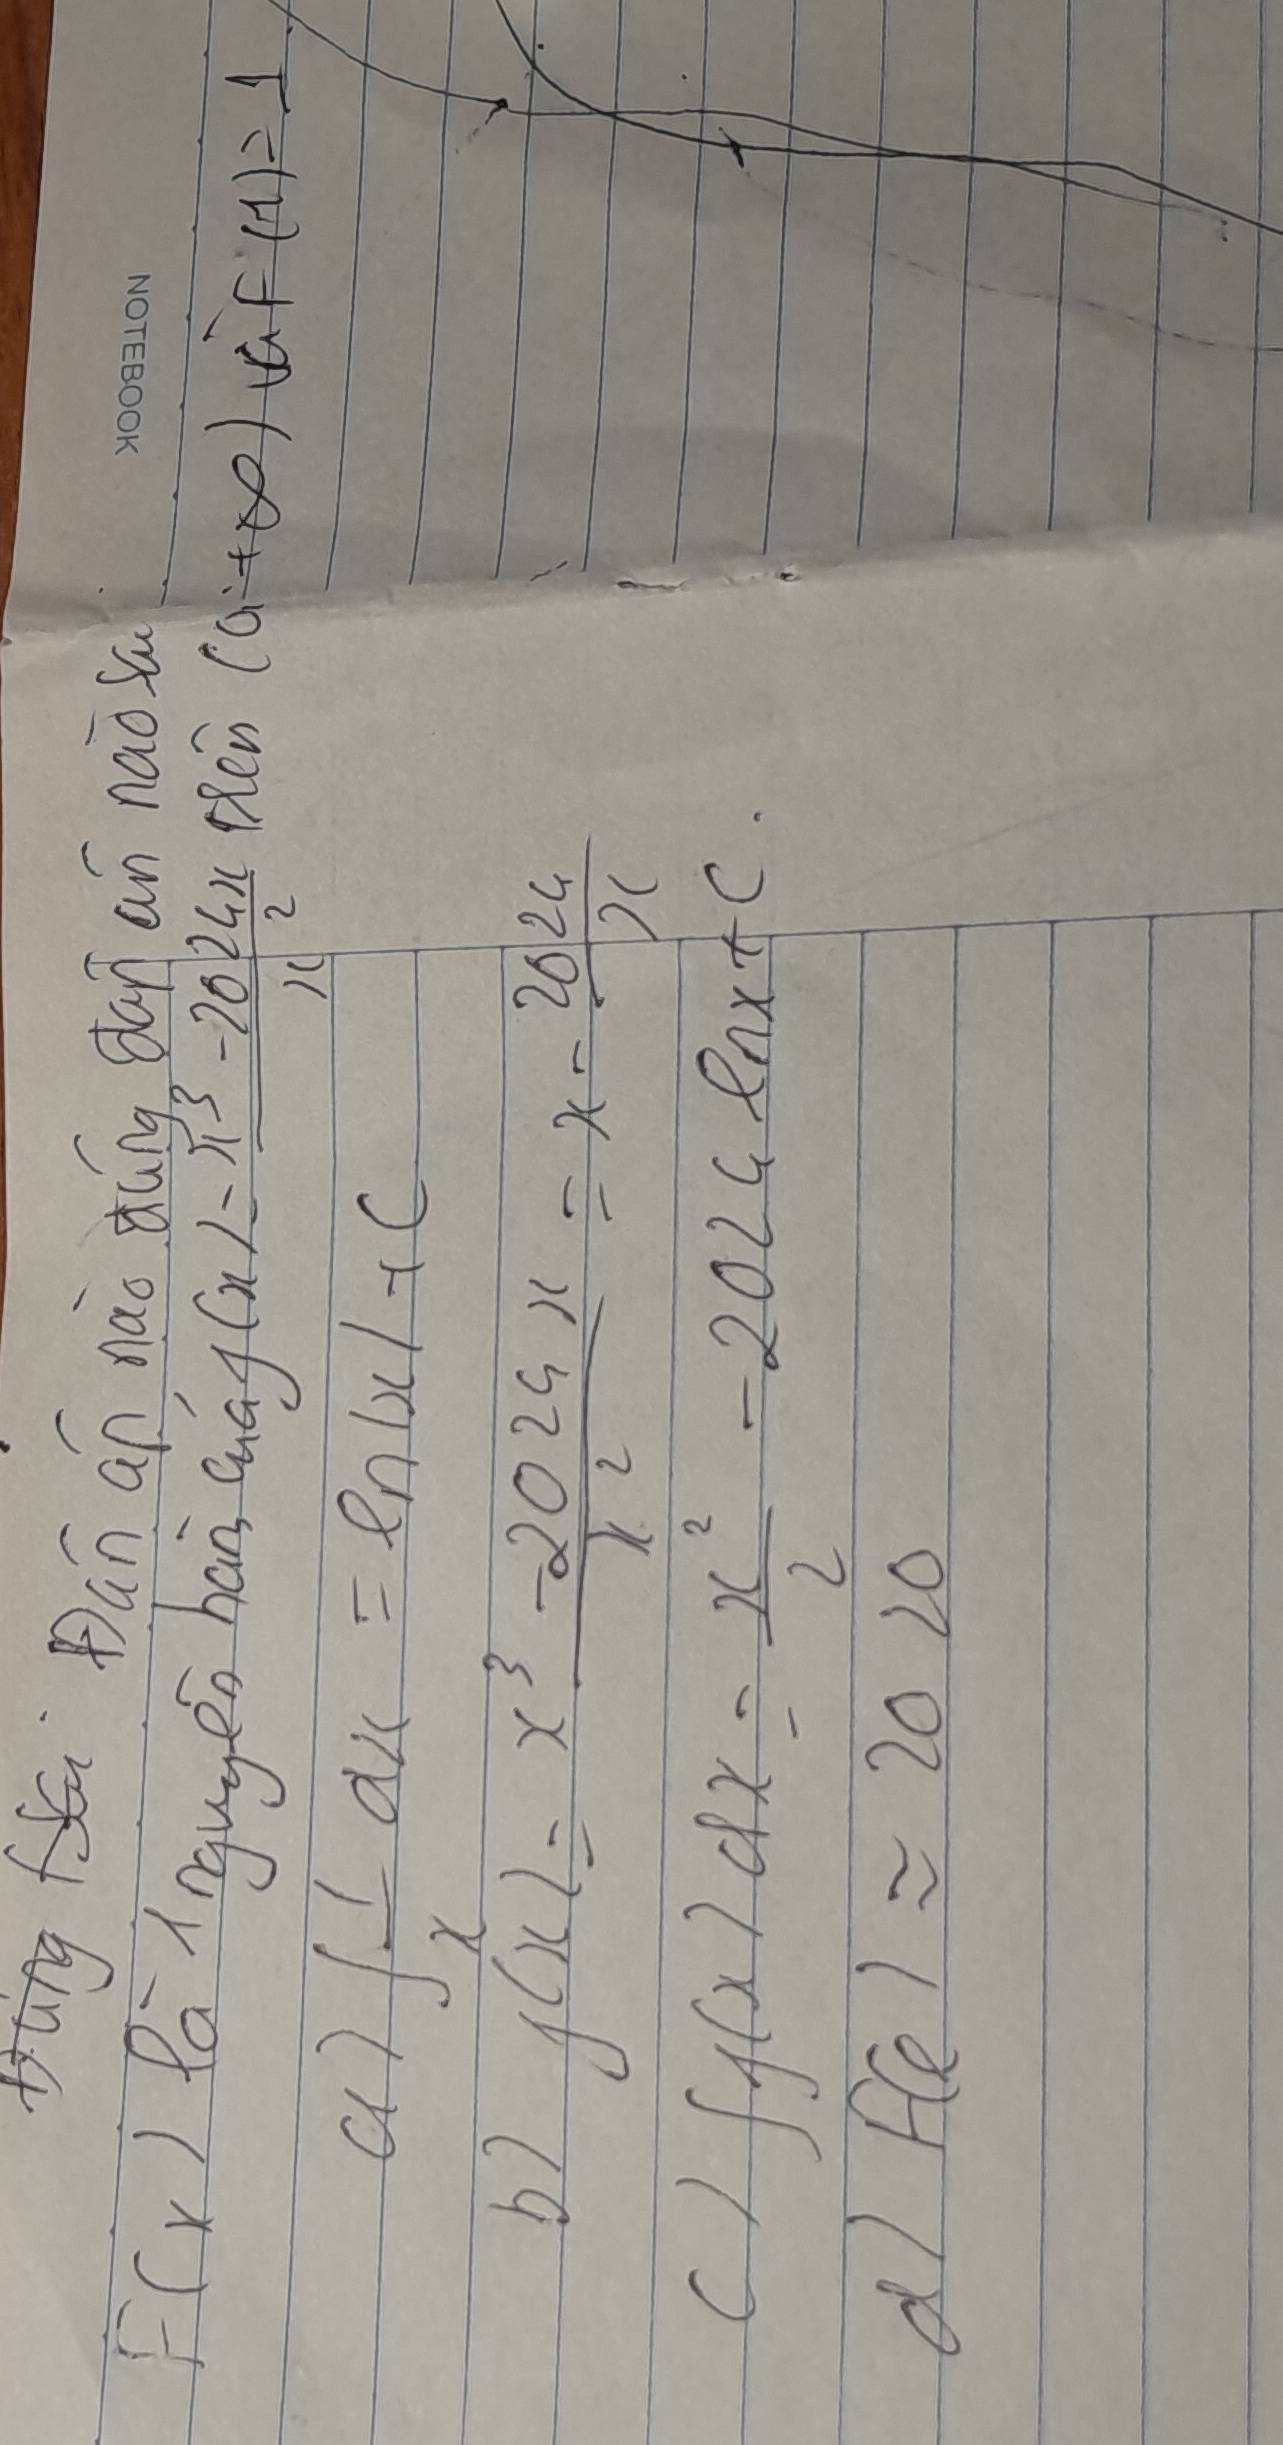 NOTEBOOK
Đúng / sai. Đán án nào đúng đáp án nào sai.
F(x) là 1 nguyên hàn của f(x) = x³ - 2024x / x² trên (0; +∞) và F(1) = 1
a) ∫ 1/x dx = ln|x| + C
b) f(x) = x³ - 2024x / x² = x - 2024/x
c) ∫f(x) dx = x²/2 - 2024 lnx + C.
d) F(e) ≈ 2020